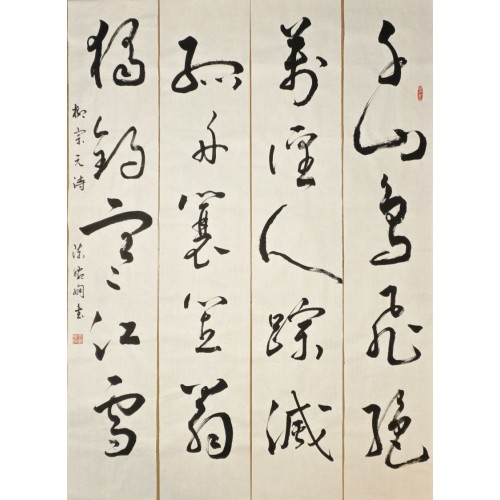 千山鳥飛絕
萬徑人踪滅
孤舟蓑笠翁
獨釣寒江雪
柳宗元詩
書